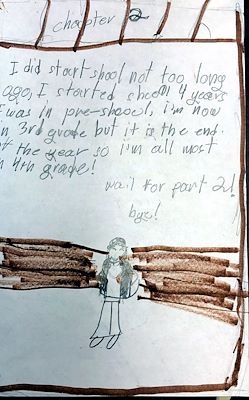 chapter 2
I did start shool not too long
ago, I started shool 4 years
I was in pre-shcool, i'm now
in 3rd grade but it is the end
of the year so i'm all most
in 4th grade!
wait for part 2!
bye!